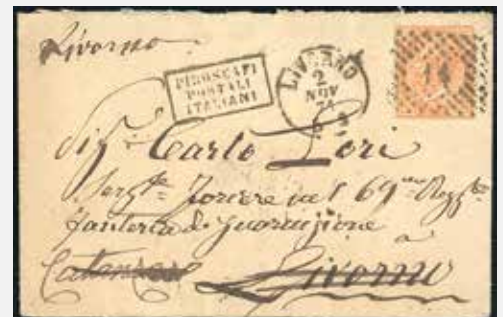 Livorno
PIROSCAFI
POSTALI
ITALIANI
LIVORNO
2
NOV
14
Sig. Carlo Lori
Serg.te Foriere nel 69mo Regg.to
fanteria di guarnigione
a
Catanzaro Livorno